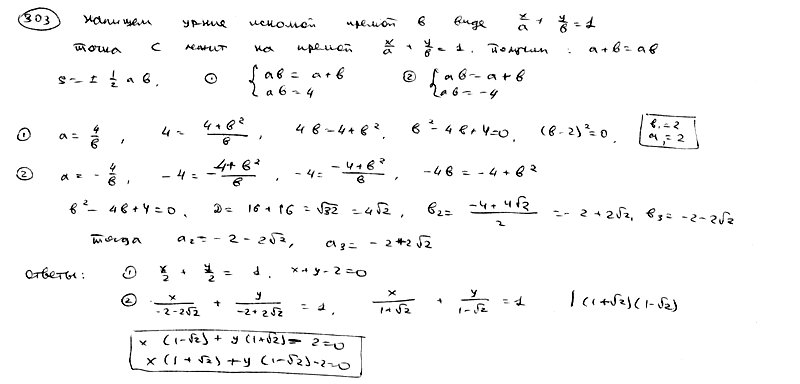 303 Напишем ур-ние искомой прямой в виде x/a + y/b = 1
точка C лежит на прямой x/a + y/b = 1. получим: a+b=ab
S = ± 1/2 ab, ① { ab = a+b ab = 4 ② { ab = a+b ab = -4
① a = 4/b, 4 = (4+b²)/b, 4b = 4+b², b²-4b+4=0, (b-2)²=0, b₁=2 a₁=2
② a = -4/b, -4 = (-4+b²)/b, -4 = (-4+b²)/b, -4b = -4+b²
b²-4b+4=0, D = 16+16 = √32 = 4√2, b₂ = (-4+4√2)/2 = -2+2√2, b₃ = -2-2√2
тогда a₂ = -2-2√2, a₃ = -2+2√2
Ответы: ① x/2 + y/2 = 1. x+y-2=0
② x/(-2-2√2) + y/(-2+2√2) = 1, x/(1+√2) + y/(1-√2) = 1 | (1+√2)(1-√2)
x(1-√2) + y(1+√2) - 2=0
x(1+√2) + y(1-√2) - 2=0